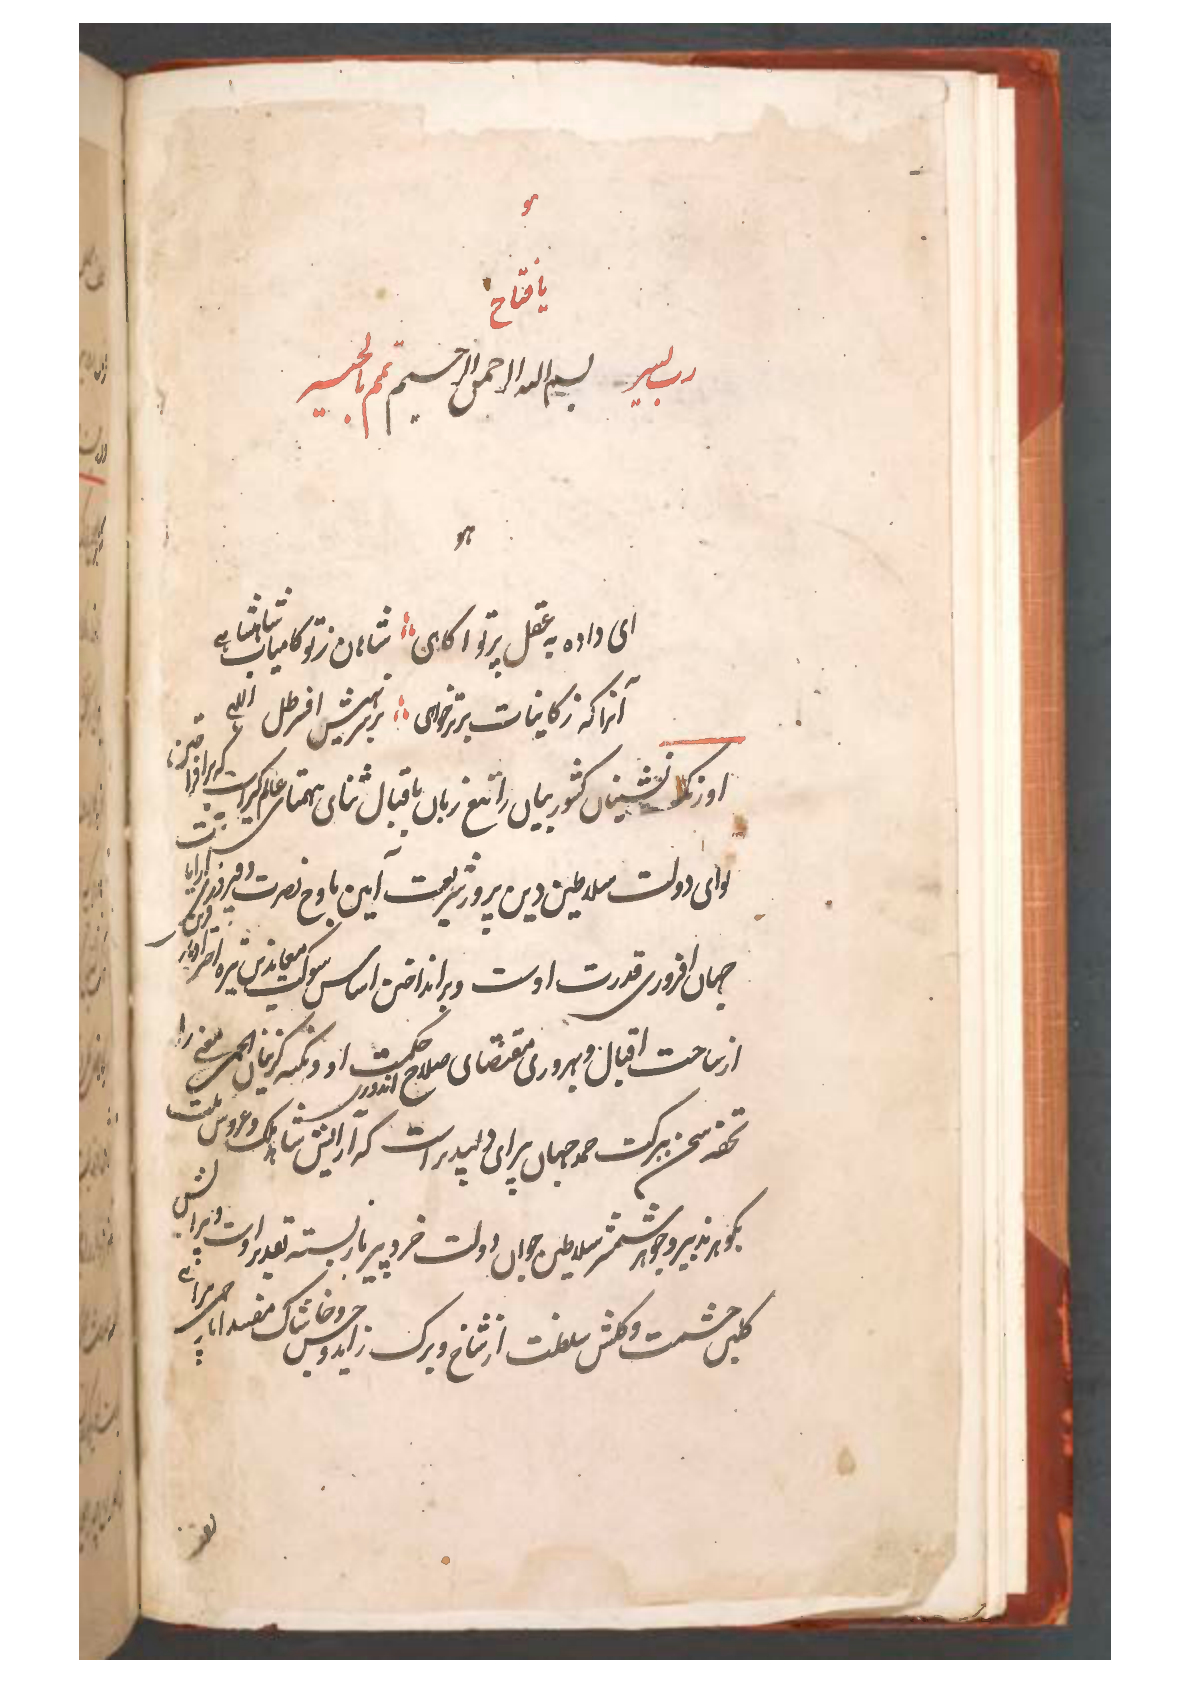 هو
یا فتاح
رب یسر بسم الله الرحمن الرحیم تمم بالخیر
هو
ای داده به عقل پرتو اکاهی شاهان ز تو کامیاب شاهنشاهی
آنرا که ز کاینات برتر خواهی بر سر نهیش افسر ظل اللهی
اورنک نشینان کشور بیان را تیغ زبان باقبال ثنای همتای عالم کیر است که برافراختن
لوای دولت سلاطین دین پرور شریعت آیین باوج نصرت و فیروزی
جهان افروزی قدرت اوست و برانداختن اساس شوکت معاندین تیره اختر
از ساحت اقبال و بهروزی مقتضای صلاح اندوزی حکمت او و نکته کزینان معنی را
تحفه سخن ببرکت حمد جهان پیرای دلپذیر است که آرایش شاهد ملک و عروس ملت
بکوهر تدبیر و جوهر شمشیر سلاطین جوان دولت خرد پیر باز بسته تقدیر اوست و پیرایش
کلبن حشمت و کلشن سلطنت از شاخ و برک زاید و خس و خاشاک مفسد